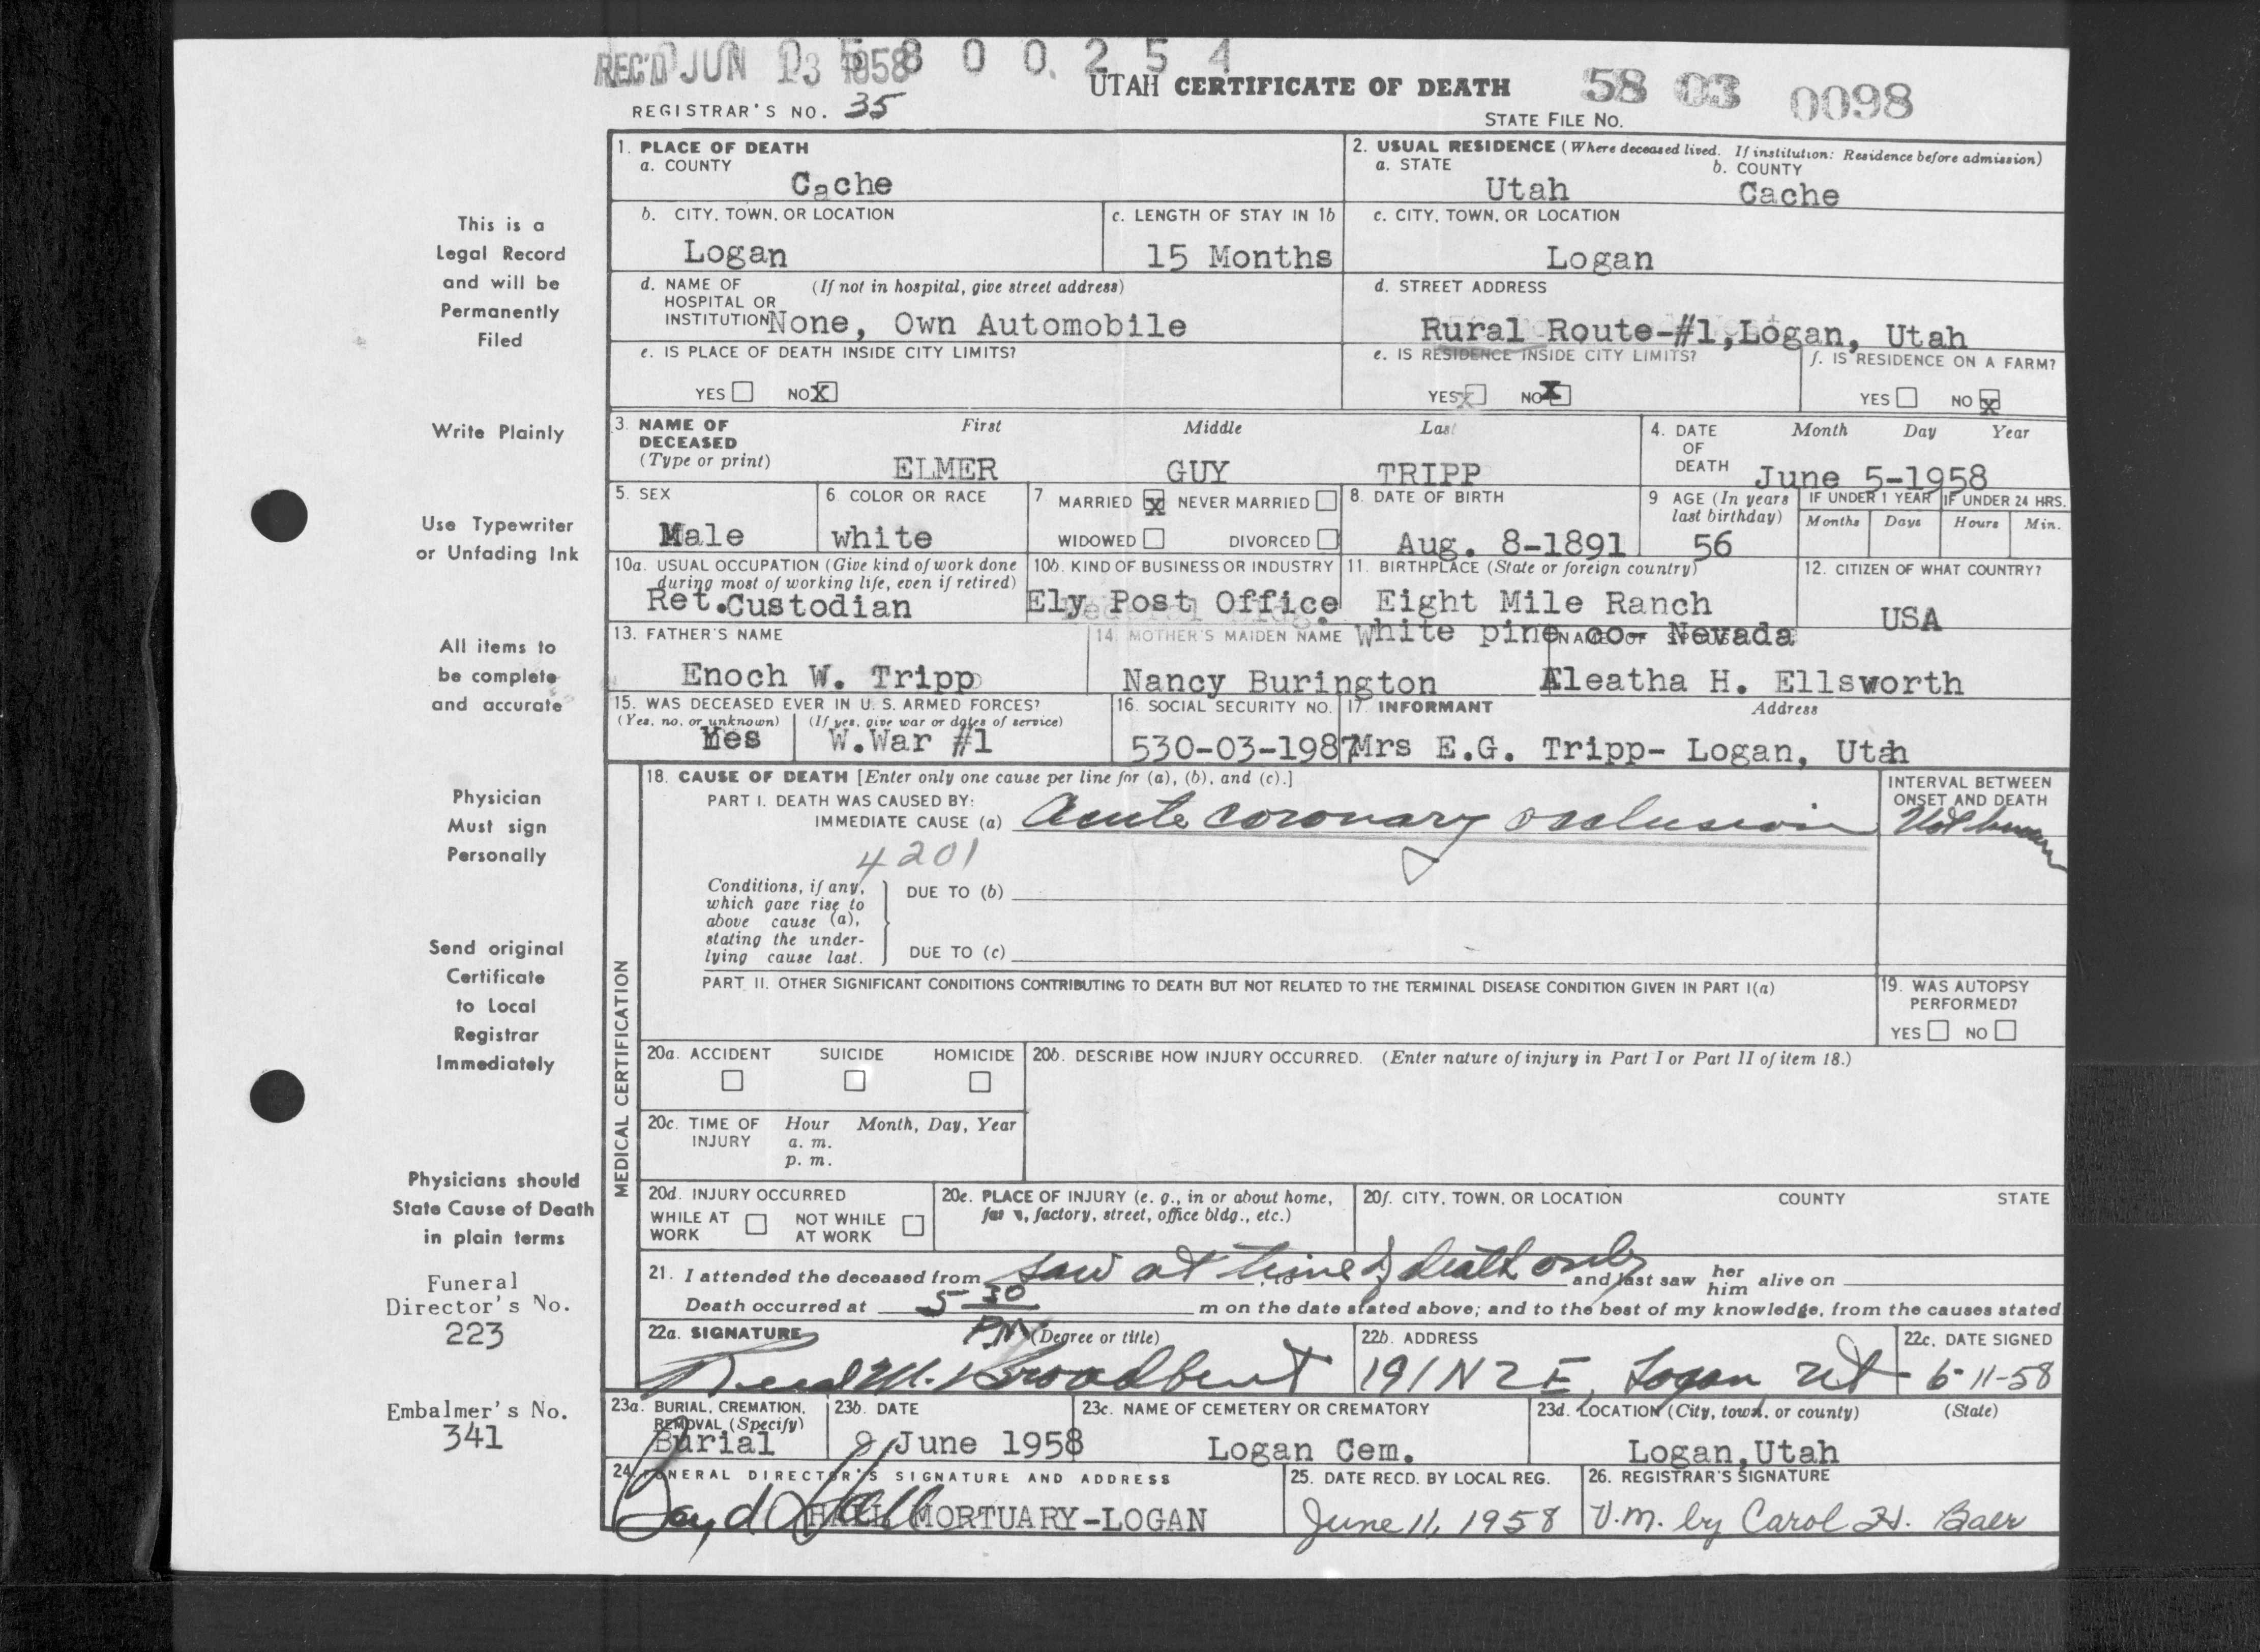 REC'D JUN 13 1958
0 5 8 0 0 2 5 4
UTAH CERTIFICATE OF DEATH
58 03 0098
REGISTRAR'S NO. 35
STATE FILE NO.
1. PLACE OF DEATH
a. COUNTY
Cache
2. USUAL RESIDENCE (Where deceased lived. If institution: Residence before admission)
a. STATE b. COUNTY
Utah Cache
b. CITY, TOWN, OR LOCATION
Logan
c. LENGTH OF STAY IN 1b
15 Months
c. CITY, TOWN, OR LOCATION
Logan
d. NAME OF (If not in hospital, give street address)
HOSPITAL OR
INSTITUTION None, Own Automobile
d. STREET ADDRESS
Rural Route-#1, Logan, Utah
e. IS PLACE OF DEATH INSIDE CITY LIMITS?
YES NO X
e. IS RESIDENCE INSIDE CITY LIMITS?
YES X NO X
f. IS RESIDENCE ON A FARM?
YES NO X
3. NAME OF
DECEASED
(Type or print)
First Middle Last
ELMER GUY TRIPP
4. DATE
OF
DEATH
Month Day Year
June 5-1958
5. SEX
Male
6. COLOR OR RACE
white
7. MARRIED X NEVER MARRIED
WIDOWED DIVORCED
8. DATE OF BIRTH
Aug. 8-1891
9 AGE (In years
last birthday)
56
IF UNDER 1 YEAR
Months Days
IF UNDER 24 HRS.
Hours Min.
10a. USUAL OCCUPATION (Give kind of work done
during most of working life, even if retired)
Ret. Custodian
10b. KIND OF BUSINESS OR INDUSTRY
Ely Post Office
11. BIRTHPLACE (State or foreign country)
Eight Mile Ranch
White pine co- Nevada
12. CITIZEN OF WHAT COUNTRY?
USA
13. FATHER'S NAME
Enoch W. Tripp
14. MOTHER'S MAIDEN NAME
Nancy Burington
NAME OF SPOUSE
Aleatha H. Ellsworth
15. WAS DECEASED EVER IN U. S. ARMED FORCES?
(Yes, no, or unknown) (If yes, give war or dates of service)
Yes W.War #1
16. SOCIAL SECURITY NO.
530-03-1987
17. INFORMANT Address
Mrs E.G. Tripp- Logan, Utah
MEDICAL CERTIFICATION
18. CAUSE OF DEATH [Enter only one cause per line for (a), (b), and (c).]
PART I. DEATH WAS CAUSED BY:
IMMEDIATE CAUSE (a) Acute coronary occlusion
INTERVAL BETWEEN
ONSET AND DEATH
4201
Conditions, if any,
which gave rise to
above cause (a),
stating the under-
lying cause last.
DUE TO (b)
DUE TO (c)
PART II. OTHER SIGNIFICANT CONDITIONS CONTRIBUTING TO DEATH BUT NOT RELATED TO THE TERMINAL DISEASE CONDITION GIVEN IN PART I(a)
19. WAS AUTOPSY
PERFORMED?
YES NO
20a. ACCIDENT SUICIDE HOMICIDE
20b. DESCRIBE HOW INJURY OCCURRED. (Enter nature of injury in Part I or Part II of item 18.)
20c. TIME OF
INJURY
Hour Month, Day, Year
a. m.
p. m.
20d. INJURY OCCURRED
WHILE AT
WORK
NOT WHILE
AT WORK
20e. PLACE OF INJURY (e. g., in or about home,
farm, factory, street, office bldg., etc.)
20f. CITY, TOWN, OR LOCATION COUNTY STATE
21. I attended the deceased from saw at time of death only and last saw her him alive on
Death occurred at 5 30 PM m on the date stated above; and to the best of my knowledge, from the causes stated
22a. SIGNATURE (Degree or title)
M. Broadbent
22b. ADDRESS
191 N 2 E, Logan Ut
22c. DATE SIGNED
6-11-58
23a. BURIAL, CREMATION,
REMOVAL (Specify)
Burial
23b. DATE
9 June 1958
23c. NAME OF CEMETERY OR CREMATORY
Logan Cem.
23d. LOCATION (City, town, or county) (State)
Logan, Utah
24. FUNERAL DIRECTOR'S SIGNATURE AND ADDRESS
Hall
HALL MORTUARY-LOGAN
25. DATE RECD. BY LOCAL REG.
June 11, 1958
26. REGISTRAR'S SIGNATURE
V.M. by Carol H. Baer
This is a
Legal Record
and will be
Permanently
Filed
Write Plainly
Use Typewriter
or Unfading Ink
All items to
be complete
and accurate
Physician
Must sign
Personally
Send original
Certificate
to Local
Registrar
Immediately
Physicians should
State Cause of Death
in plain terms
Funeral
Director's No.
223
Embalmer's No.
341